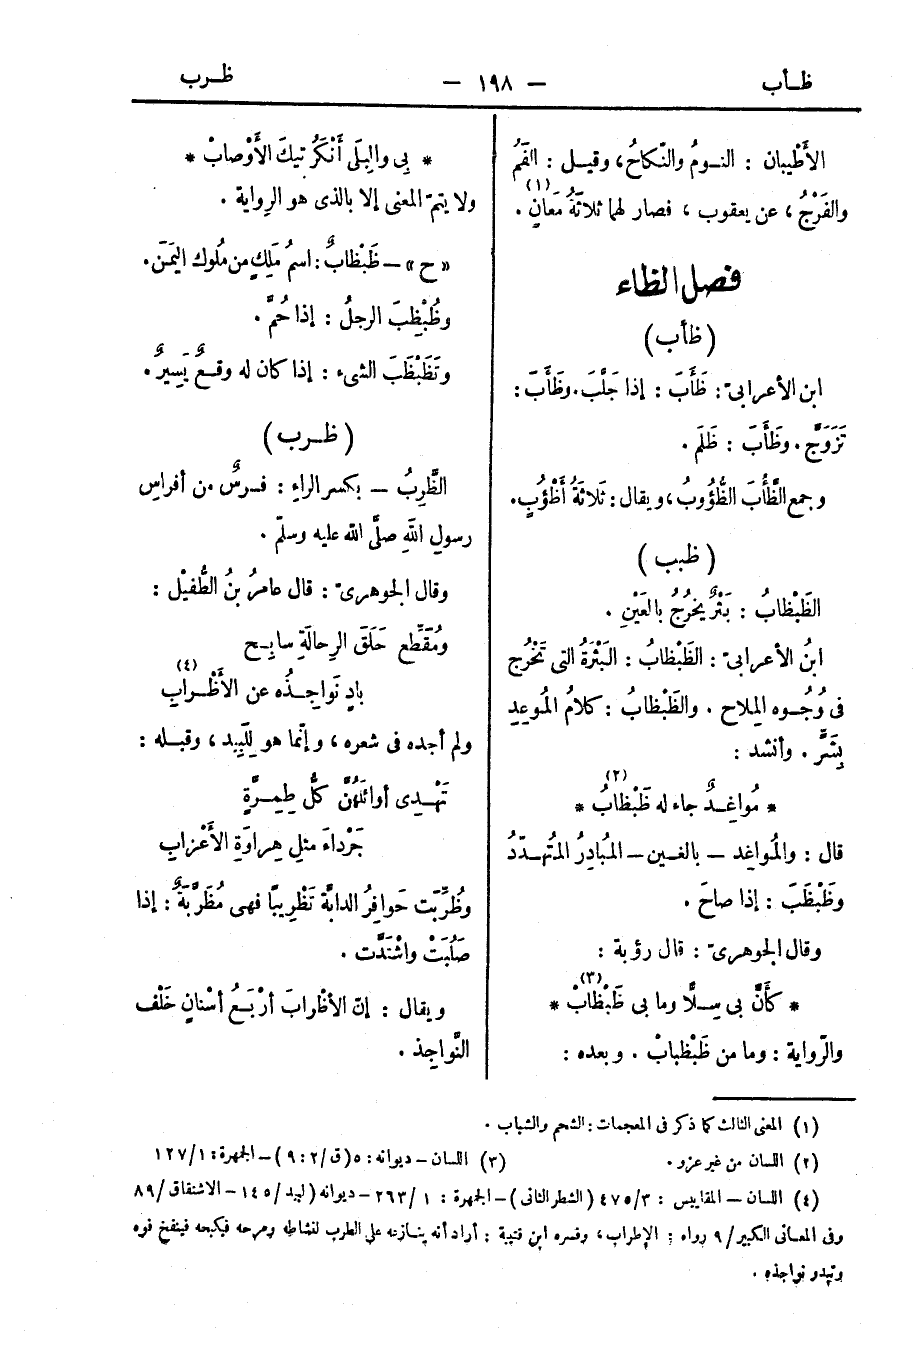 ظـأب
— ١٩٨ —
ظـرب
الأَطْيبان : النـومُ والنّكاحُ، وقيـل : الفَمُ
والفَرْجُ، عن يعقوب ، فصار لهما ثلاثَةُ مَعانٍ(١) .
فصل الظاء
( ظأب )
ابن الأعرابىّ : ظَأَبَ : إذا جَلَّبَ. وظَأَبَ :
تَزَوَّجَ. وظَأَبَ : ظَلَمَ .
وجمع الظَّأْبَ الظُّؤُوبُ، ويقال : ثَلاثَةُ أَظْؤُبٍ.
( ظبب )
الظَّبْظابُ : بَثْرٌ يَخْرُجُ بالعَيْنِ .
ابنُ الأعرابىّ : الظَّبْظابُ : البَثْرَةُ التى تَخْرُج
فى وُجُـوه المِلاح . والظَّبْظابُ : كلامُ المُوعِدِ
بِشَرٍّ . وأنشد :
* مُواغِـدٌ جاء له ظَبْظابُ(٢) *
قال : والمُواغِد – بالغـين – المُبادِرُ المُتَهدِّدُ
وظَبْظَبَ : إذا صاحَ .
وقال الجوهرىّ : قال رؤبة :
* كَأَنَّ بى سِـلًّا وما بى ظَبْظابْ(٣) *
والرّواية : وما من ظَبْظابْ . وبعده :
* بِى والبِلَى أَنْكَرُ تيكَ الأَوْصابْ *
ولا يتمّ المعنى إلا بالذى هو الرِواية .
« ح » – ظَبْظابٌ : اسمُ مَلِكٍ من مُلوك اليَمَن.
وظُبْظِبَ الرجلُ : إذا حُمَّ .
وتَظَبْظَبَ الشىء : إذا كان له وقعٌ يَسِيرٌ .
( ظـرب )
الظَّرِبُ – بكسر الراء : فـرسٌ من أفراس
رسولِ اللهِ صلَّى الله عليه وسلّم .
وقال الجوهرىّ : قال عامرُ بنُ الطُّفَيْل :
ومُقَطِّعٍ حَلَقَ الرِحالَةِ سابِـحٍ
بادٍ نَواجِـذُه عن الأَظْـرابِ(٤)
ولم أجده فى شعره ، وإنّما هو لِلَبِيد ، وقبـله :
تَهْـدِى أوائلَهُنَّ كلُّ طِمِـرَّةٍ
جَرْداءَ مثلِ هِراوَةِ الأَعْزابِ
وظُرِّبَت حَوافِرُ الدابَّة تَظْرِيبًا فهى مُظَرَّبَةٌ : إذا
صَلُبَتْ واشْتَدَّت .
ويقال : إنّ الأظرابَ أرْبَـعُ أسْنانٍ خَلْف
النَّواجِذ .
(١) المعنى الثالث كما ذكر فى المعجمات : الشحم والشباب .
(٢) اللسان من غير عزو .
(٣) اللسان – ديوانه : ٥ (ق/٢ : ٩) – الجمهرة : ١/ ١٢٧
(٤) اللسان – المقاييس : ٣/ ٤٧٥ (الشطر الثانى) – الجمهرة : ١ / ٢٦٣ – ديوانه (لبيد/ ١٤٥ – الاشتقاق / ٨٩
وفى المعـانى الكبير / ٩ رواه : الإطراب ، وفسره ابن قتيبة : أراد أنه ينـازعه على الطرب لنشاطه ومرحه فيكبحه فينفخ فوه
وتبدو نواجذه .